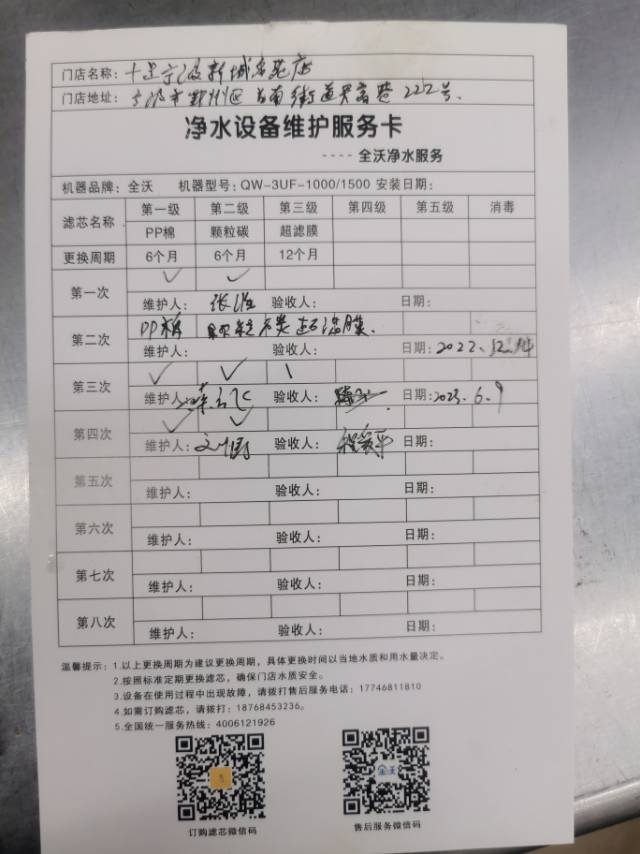 门店名称:
门店地址: 222号.
净水设备维护服务卡
----全沃净水服务
机器品牌: 全沃 机器型号: QW-3UF-1000/1500 安装日期:
滤芯名称 第一级 第二级 第三级 第四级 第五级 消毒
PP棉 颗粒碳 超滤膜
更换周期 6个月 6个月 12个月
第一次 ✓ ✓
维护人: 验收人: 日期:
第二次 PP棉 超滤膜.
维护人: 验收人: 日期: 2022.12.14
第三次 ✓ ✓
维护人: 验收人: 日期: 2023.6.9
第四次 ✓ ✓
维护人: 验收人: 日期:
第五次
维护人: 验收人: 日期:
第六次
维护人: 验收人: 日期:
第七次
维护人: 验收人: 日期:
第八次
维护人: 验收人: 日期:
温馨提示: 1.以上更换周期为建议更换周期,具体更换时间以当地水质和用水量决定。
2.按照标准定期更换滤芯,确保门店水质安全。
3.设备在使用过程中出现故障,请拨打售后服务电话: 17746811810
4.如需订购滤芯,请拨打: 18768453236。
5.全国统一服务热线: 4006121926
全沃
订购滤芯微信码 售后服务微信码